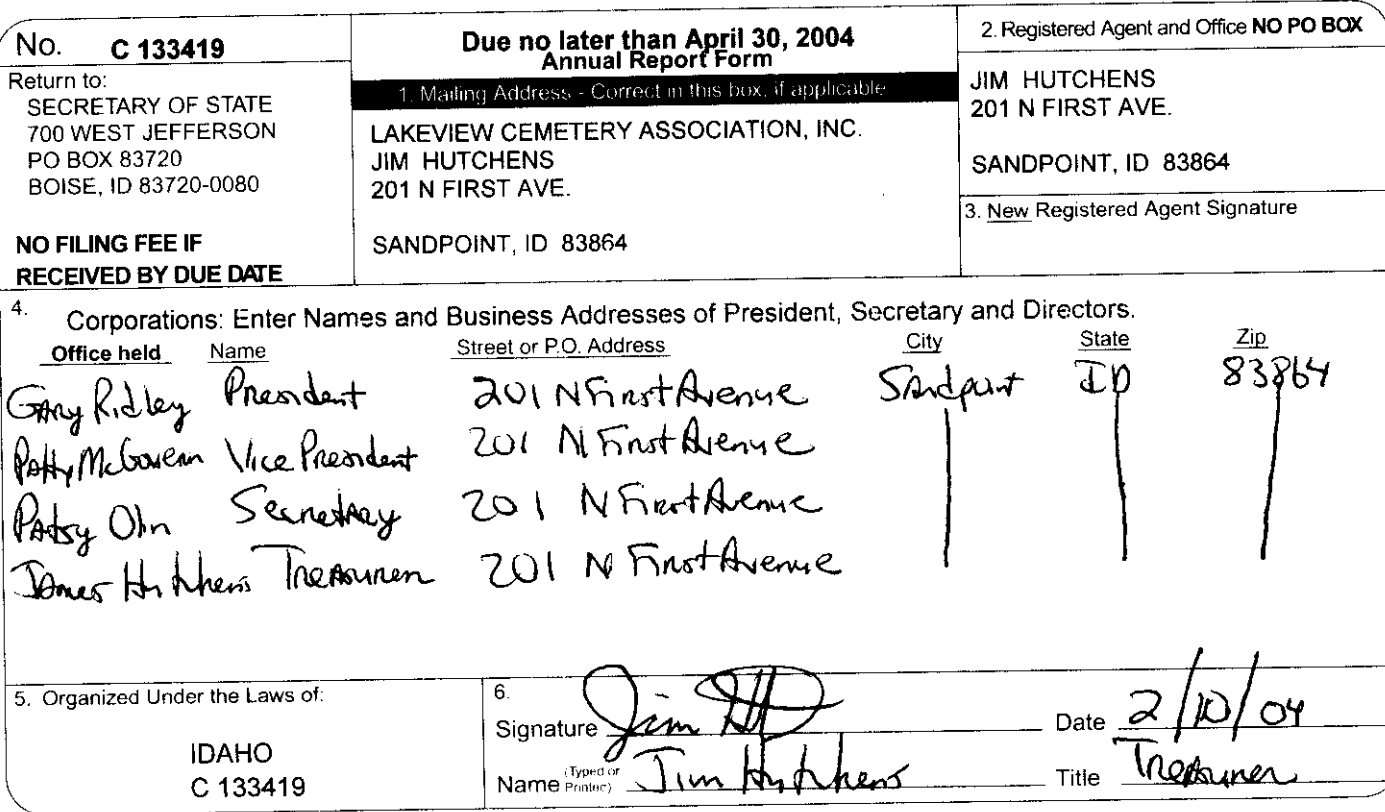 No. C 133419
Return to:
SECRETARY OF STATE
700 WEST JEFFERSON
PO BOX 83720
BOISE, ID 83720-0080
NO FILING FEE IF
RECEIVED BY DUE DATE
Due no later than April 30, 2004
Annual Report Form
1. Mailing Address - Correct in this box, if applicable
LAKEVIEW CEMETERY ASSOCIATION, INC.
JIM HUTCHENS
201 N FIRST AVE.
SANDPOINT, ID 83864
2. Registered Agent and Office NO PO BOX
JIM HUTCHENS
201 N FIRST AVE.
SANDPOINT, ID 83864
3. New Registered Agent Signature
4. Corporations: Enter Names and Business Addresses of President, Secretary and Directors.
Office held Name Street or P.O. Address City State Zip
Gary Ridley President 201 N First Avenue Sandpoint ID 83864
Patty McGovern Vice President 201 N First Avenue
Patsy Olin Secretary 201 N First Avenue
James Hutchens Treasurer 201 N First Avenue
5. Organized Under the Laws of:
IDAHO
C 133419
6.
Signature Jim Date 2/10/04
Name (Typed or Printed) Jim Hutchens Title Treasurer